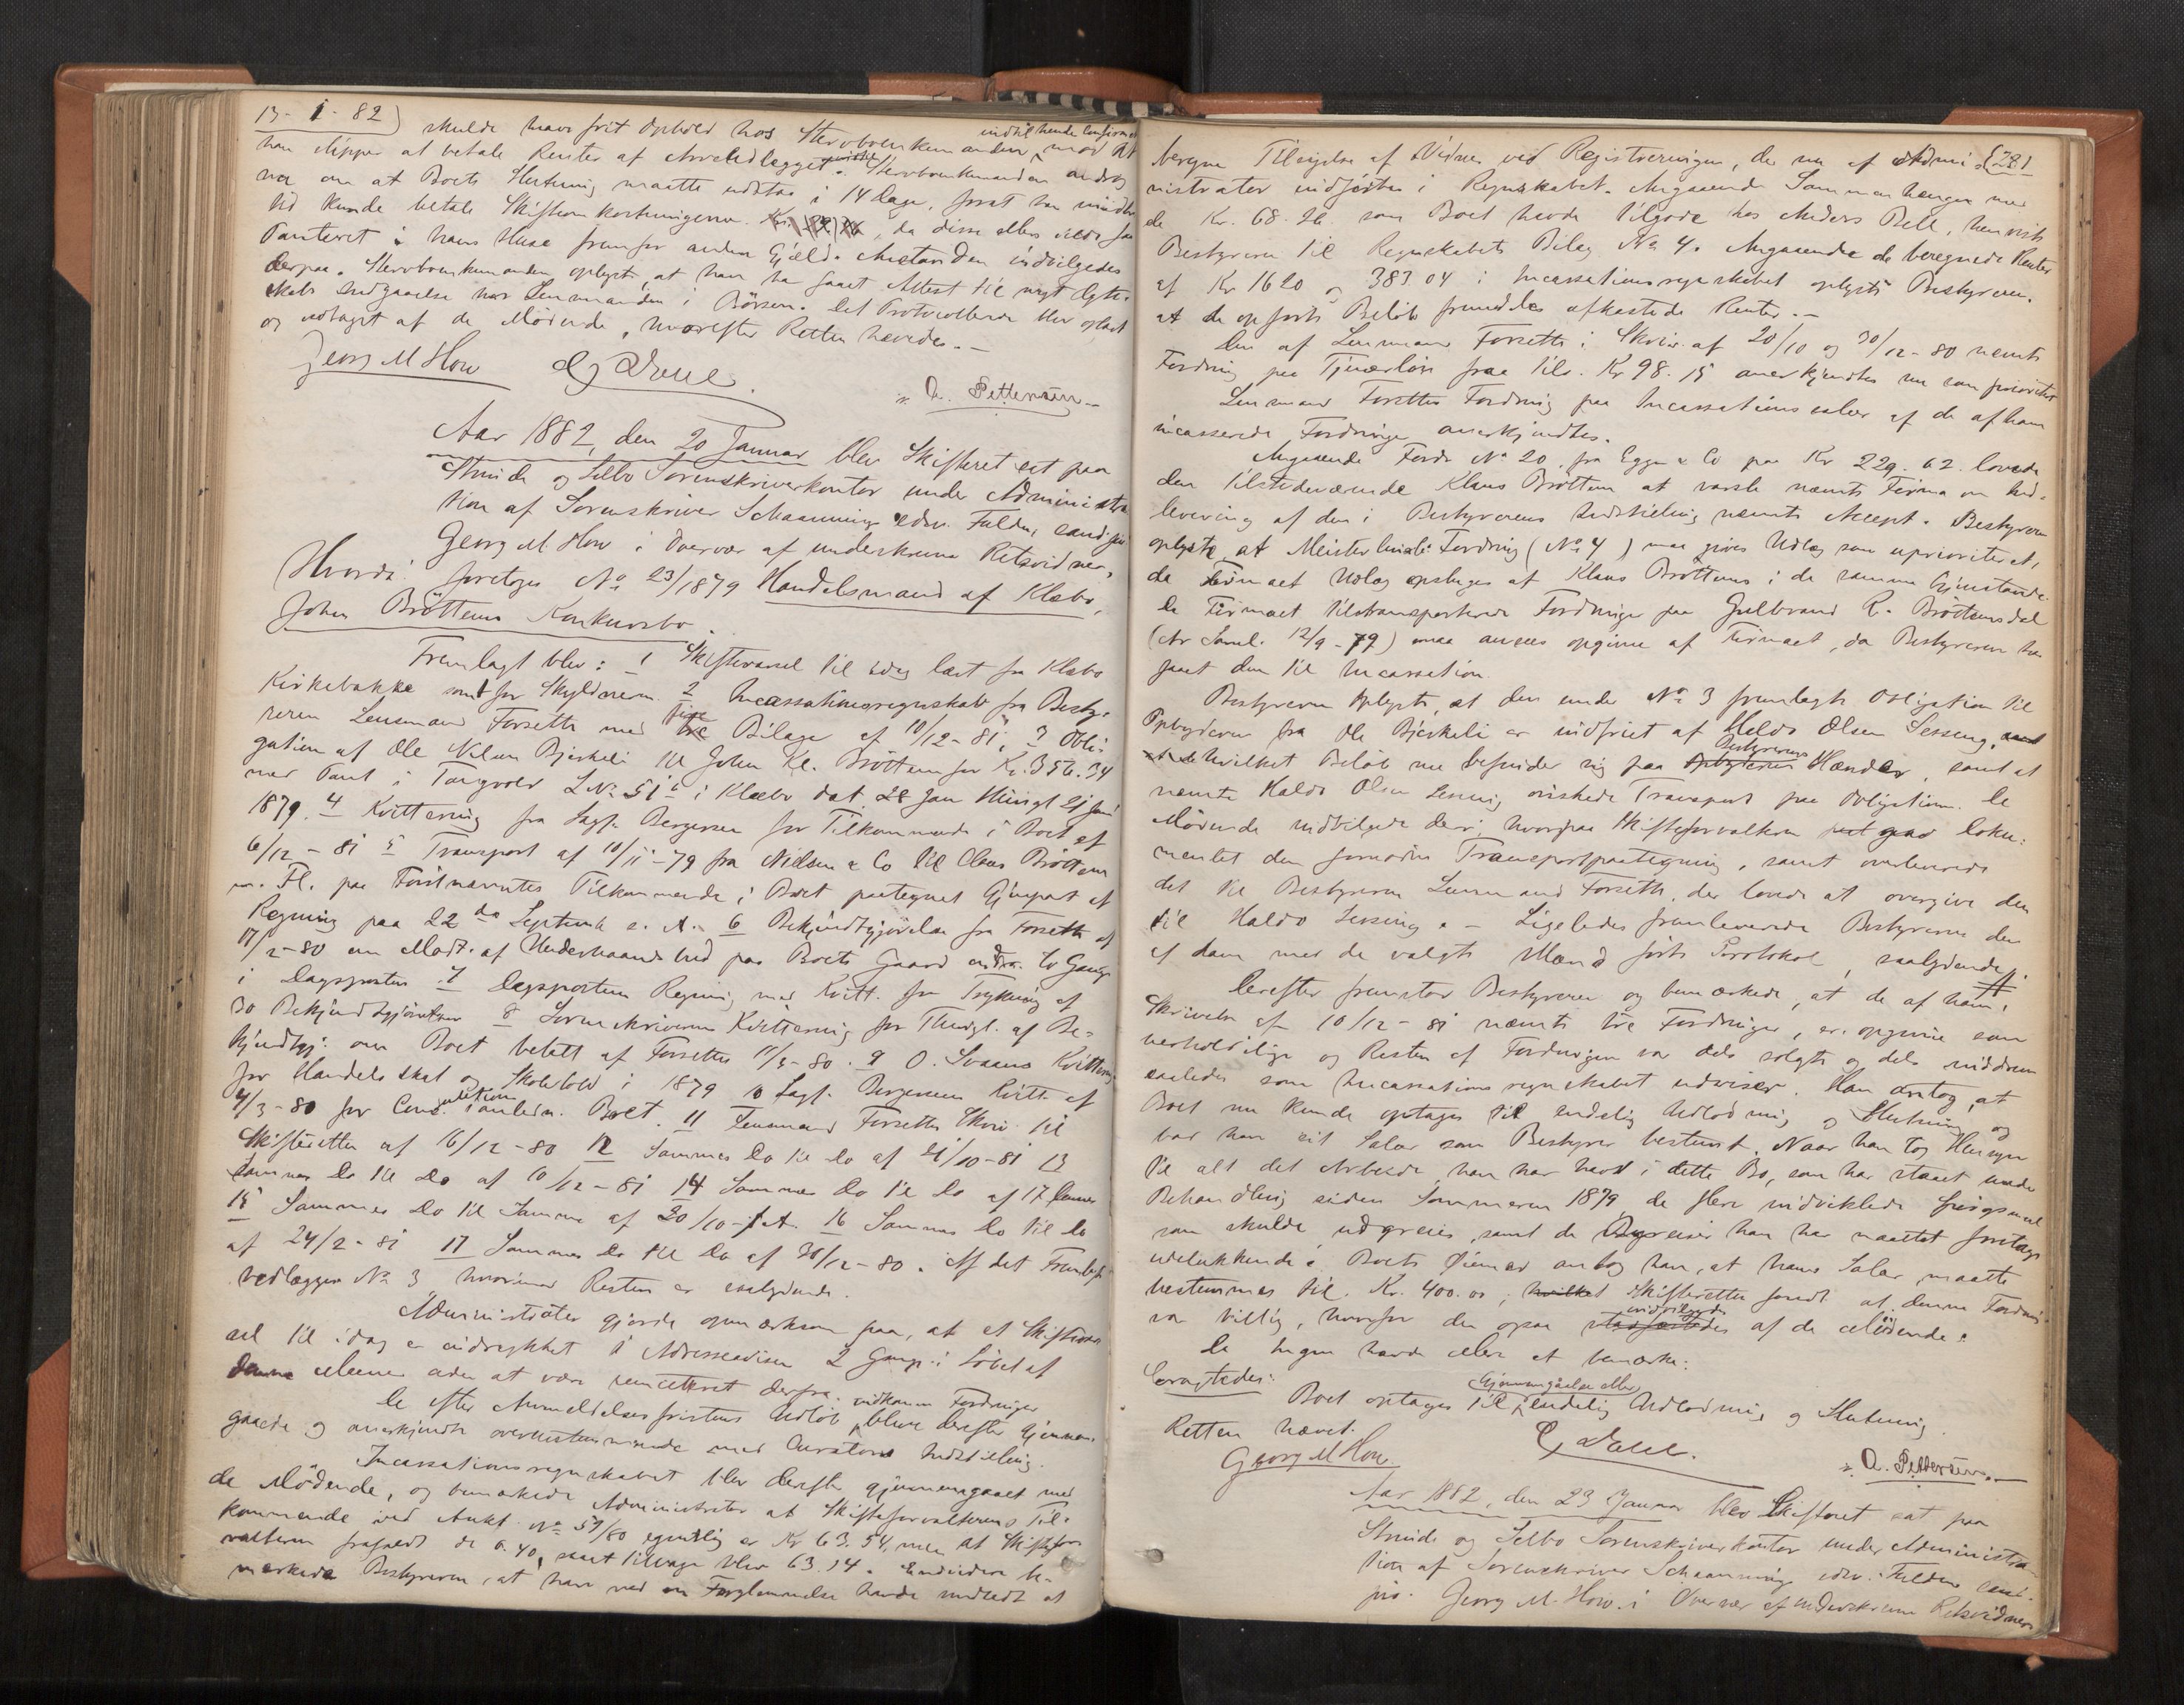 13-1-82) skulde have frit Ophold hos Stervboenkemanden, mod at
indtil hendes Confirma
han slipper at betale Renter af Arveudlægget. Stervboenkemanden androg
nu om at Boets Slutning maatte udsættes i 14 Dage, forat han mindre
tid kunde betale Skifteomkostningerne, da disse ellers vilde faa
Panteret i hans Huse fremfor anden Gjæld. Anstanden indvilgedes
derpaa. Stervboenkemanden oplyste, at han har faaet Attest til nyt Ægte-
skabs Indgaaelse hos Lensmanden i Börsen. Det Protocollerede blev oplæst
og vedtaget af de Mødende, hvorefter Retten hævedes.-
Georg M How
A. Pettersen
Aar 1882, den 20 Januar blev Skifteret sat paa
Strinde og Selbo Sorenskriverkontor under Administra
tion af Sorenskriver Schaanning edsv. Fuldm, cand jur
Georg M. How i Overvær af underskrevne Retsvidner,
Hvorda foretoges No 23/1879 Handelsmand af Klæbo,
John Bröttems Konkursbo.
Fremlagt blev: 1 Skiftevarsel til idag læst fra Klæbo
Kirkebakke samt for Skyldneren. 2 Incassationsregnskab fra Besty-
reren Lensmand Forseth med fire Bilage af 10/12-81, 3 Obli-
gation af Ole Nilsen Bjerkeli til John Kl. Bröttem for Kr. 356.34
med Pant i Tangvold LNo 51 i Klæbo dat. 28 Jan thingl 2j Juni
1879. 4 Kvittering fra Sagf. Bergersen for Tilkommende i Boet af
6/12-81 5 Transport af 10/11-79 fra Nielsen & Co til Claus Bröttem
m. Fl. paa Förstnævntes Tilkommende i Boet paategnet Gjenpart af
Regning paa 22de Septemb s. A. 6 Bekjendtgjörelse fra Forseth af
17/2-80 om Modt. af Underhaandsbud paa Boets Gaard to Gange
i Dagsposten 7 Dagspostens Regning med Kvitt. for Trykning af
30 Bekjendtgjörelser 8 Sorenskriverens Kvittering for Thinglæ. af Be-
kjendtgj. om Boet betalt af Forseth 11/5-80. 9 O. Svaans Kvittering
for Handelsskat og Skoletold i 1879 10 Sagf. Bergersens Kvitt. af
4/3-80 for Consultation anledn. Boet. 11 Lensmand Forseths Skriv. til
Skifteretten af 16/12-80 12 Sammes Do til Do af 21/10-81 13
Sammes Do til Do af 10/12-81 14 Sammes Do til Do af 17 Januar
15 Sammes Do til Samme af 20/10-f.A. 16 Sammes Do til Do
af 24/2-81 17 Sammes Do til Do af 30/12-80. Af det Fremlagte
vedlægges No 3 hvorimod Resten er saalydende.
Administrator gjorde opmærksom paa, at et Skiftevar
sel til idag er indrykket i Adresseavisen 2 Gange i Löbet af
denne Maaned uden at være remitteret derfra.
De efter Anmeldelsesfristens Udlöb indkomne Fordringer bleve derefter gjennem-
gaaede og anerkjendte overensstemmende med Curators Indstilling.
Incassationsregnskabet blev derefter gjennemgaaet med
de Mödende, og bemærkede Administrator at Skifteforvalterens Til-
kommende ved Aukt. No 59/80 egentlig er Kr 63.54, men at Skiftefor
valteren frafaldt de 0.40, saat tilbage blev 63.14. Endvidere be-
mærkede Bestyreren, at han ved en Forglemmelse havde undladt at
beregne Tilsigelse af Vidner ved Registreringen, der nu af Admi-
(281
nistrator indförtes i Regnskabet. Angaaende Sammenhængen med
de Kr. 68.26 som Boet havde tilgode hos Anders Bell, henviste
Bestyreren til Regnskabets Bilag No 4. Angaaende de beregnede Renter
af Kr 1620 og 383.04 i Incassationsregnskabet oplyste Bestyreren,
at de opförte Belöb fremdeles afkastede Renter.-
Den af Lensmand Forseth i Skriv. af 20/10 og 30/12-80 nævnte
Fordring paa Tjenerlön fraa tils. Kr 98.15 anerkjendtes nu som prioriteret
Lensmand Forseths Fordring paa Incassationssalær af de af ham
incasserede Fordringer anerkjendtes.
Angaaende Fordr. No 20 fra Egge & Co paa Kr 229.62 lovede
den tilstedeværende Klaus Bröttem at varsle nævnte Firma om Ind-
levering af den i Bestyrerens Indstilling nævnte Accept. Bestyreren
oplyste, at Meisterlins Fordring (No 4) maa gives Udlæg som uprioriteret,
da Firmaet Udlæg opsluges af Klaus Bröttems i de samme Gjenstande.
De Firmaet tiltransporterede Fordringer paa Gulbrand R. Bröttemsdal
(Ar Saml. 12/9-79) maa ansees opgivne af Firmaet, da Bestyreren har
faaet dem til Incassation.
Bestyreren oplyste, at den under No 3 fremlagte Obligation til
Opbyderen fra Ole Bjerkeli er indfriet af Haldo Olsen Sessing,
hvilket Belöb nu befinder sig paa Bestyrerens Hænder, samt at
nævnte Haldo Olsen Sessing önskede Transport paa Obligationen. De
Mödende indvilgede deri, hvorpaa Skifteforvalteren gav Doku-
mentet den fornødne Transportpaategning, samt overleverede
det til Bestyreren Lensmand Forseth, der lovede at overgive den
til Haldo Sessing. - Ligeledes fremleverede Bestyreren den
af ham med de valgte Mænd förte Protokol, saalydende #.
Derefter fremstod Bestyreren og bemærkede, at de af ham i
Skrivelse af 10/12-81 nævnte tre Fordringer, er opgivne som
uerholdelige og Resten af Fordringen var dels solgte og dels inddrevne
saaledes som Incassationsregnskabet udviser. Han antog, at
Boet nu kunde optages til endelig Udlodning og Slutning og
bad han sit Salær som Bestyrer bestemt. Naar han tog Hensyn
til alt det Arbeide, han har havd i dette Bo, som har staaet under
Behandling siden Sommeren 1879, de flere indviklede Spörgsmaal
som skulde udgreies, samt de Byreiser han har maattet foretage
udelukkende i Boets Öiemed antog han, at hans Salær maatte
bestemmes til Kr. 400.00; Skifteretten fandt at denne Fordring
var billig, hvorfor den ogsaa indvilgedes af de Mödende.
Da Ingen havde videre at bemærke:
Eragtedes:
Boet optages til Gjennemgåelse eller endelig Udlodning og Slutning.
Retten hævet.
Georg M How.
A. Pettersen.
Aar 1882, den 23 Januar blev Skifteret sat paa
Strinde og Selbo Sorenskriverkontor under Administra-
tion af Sorenskriver Schaanning edsv. Fuldm cand.
jur. Georg M. How i Overvær af underskrevne Retsvidner